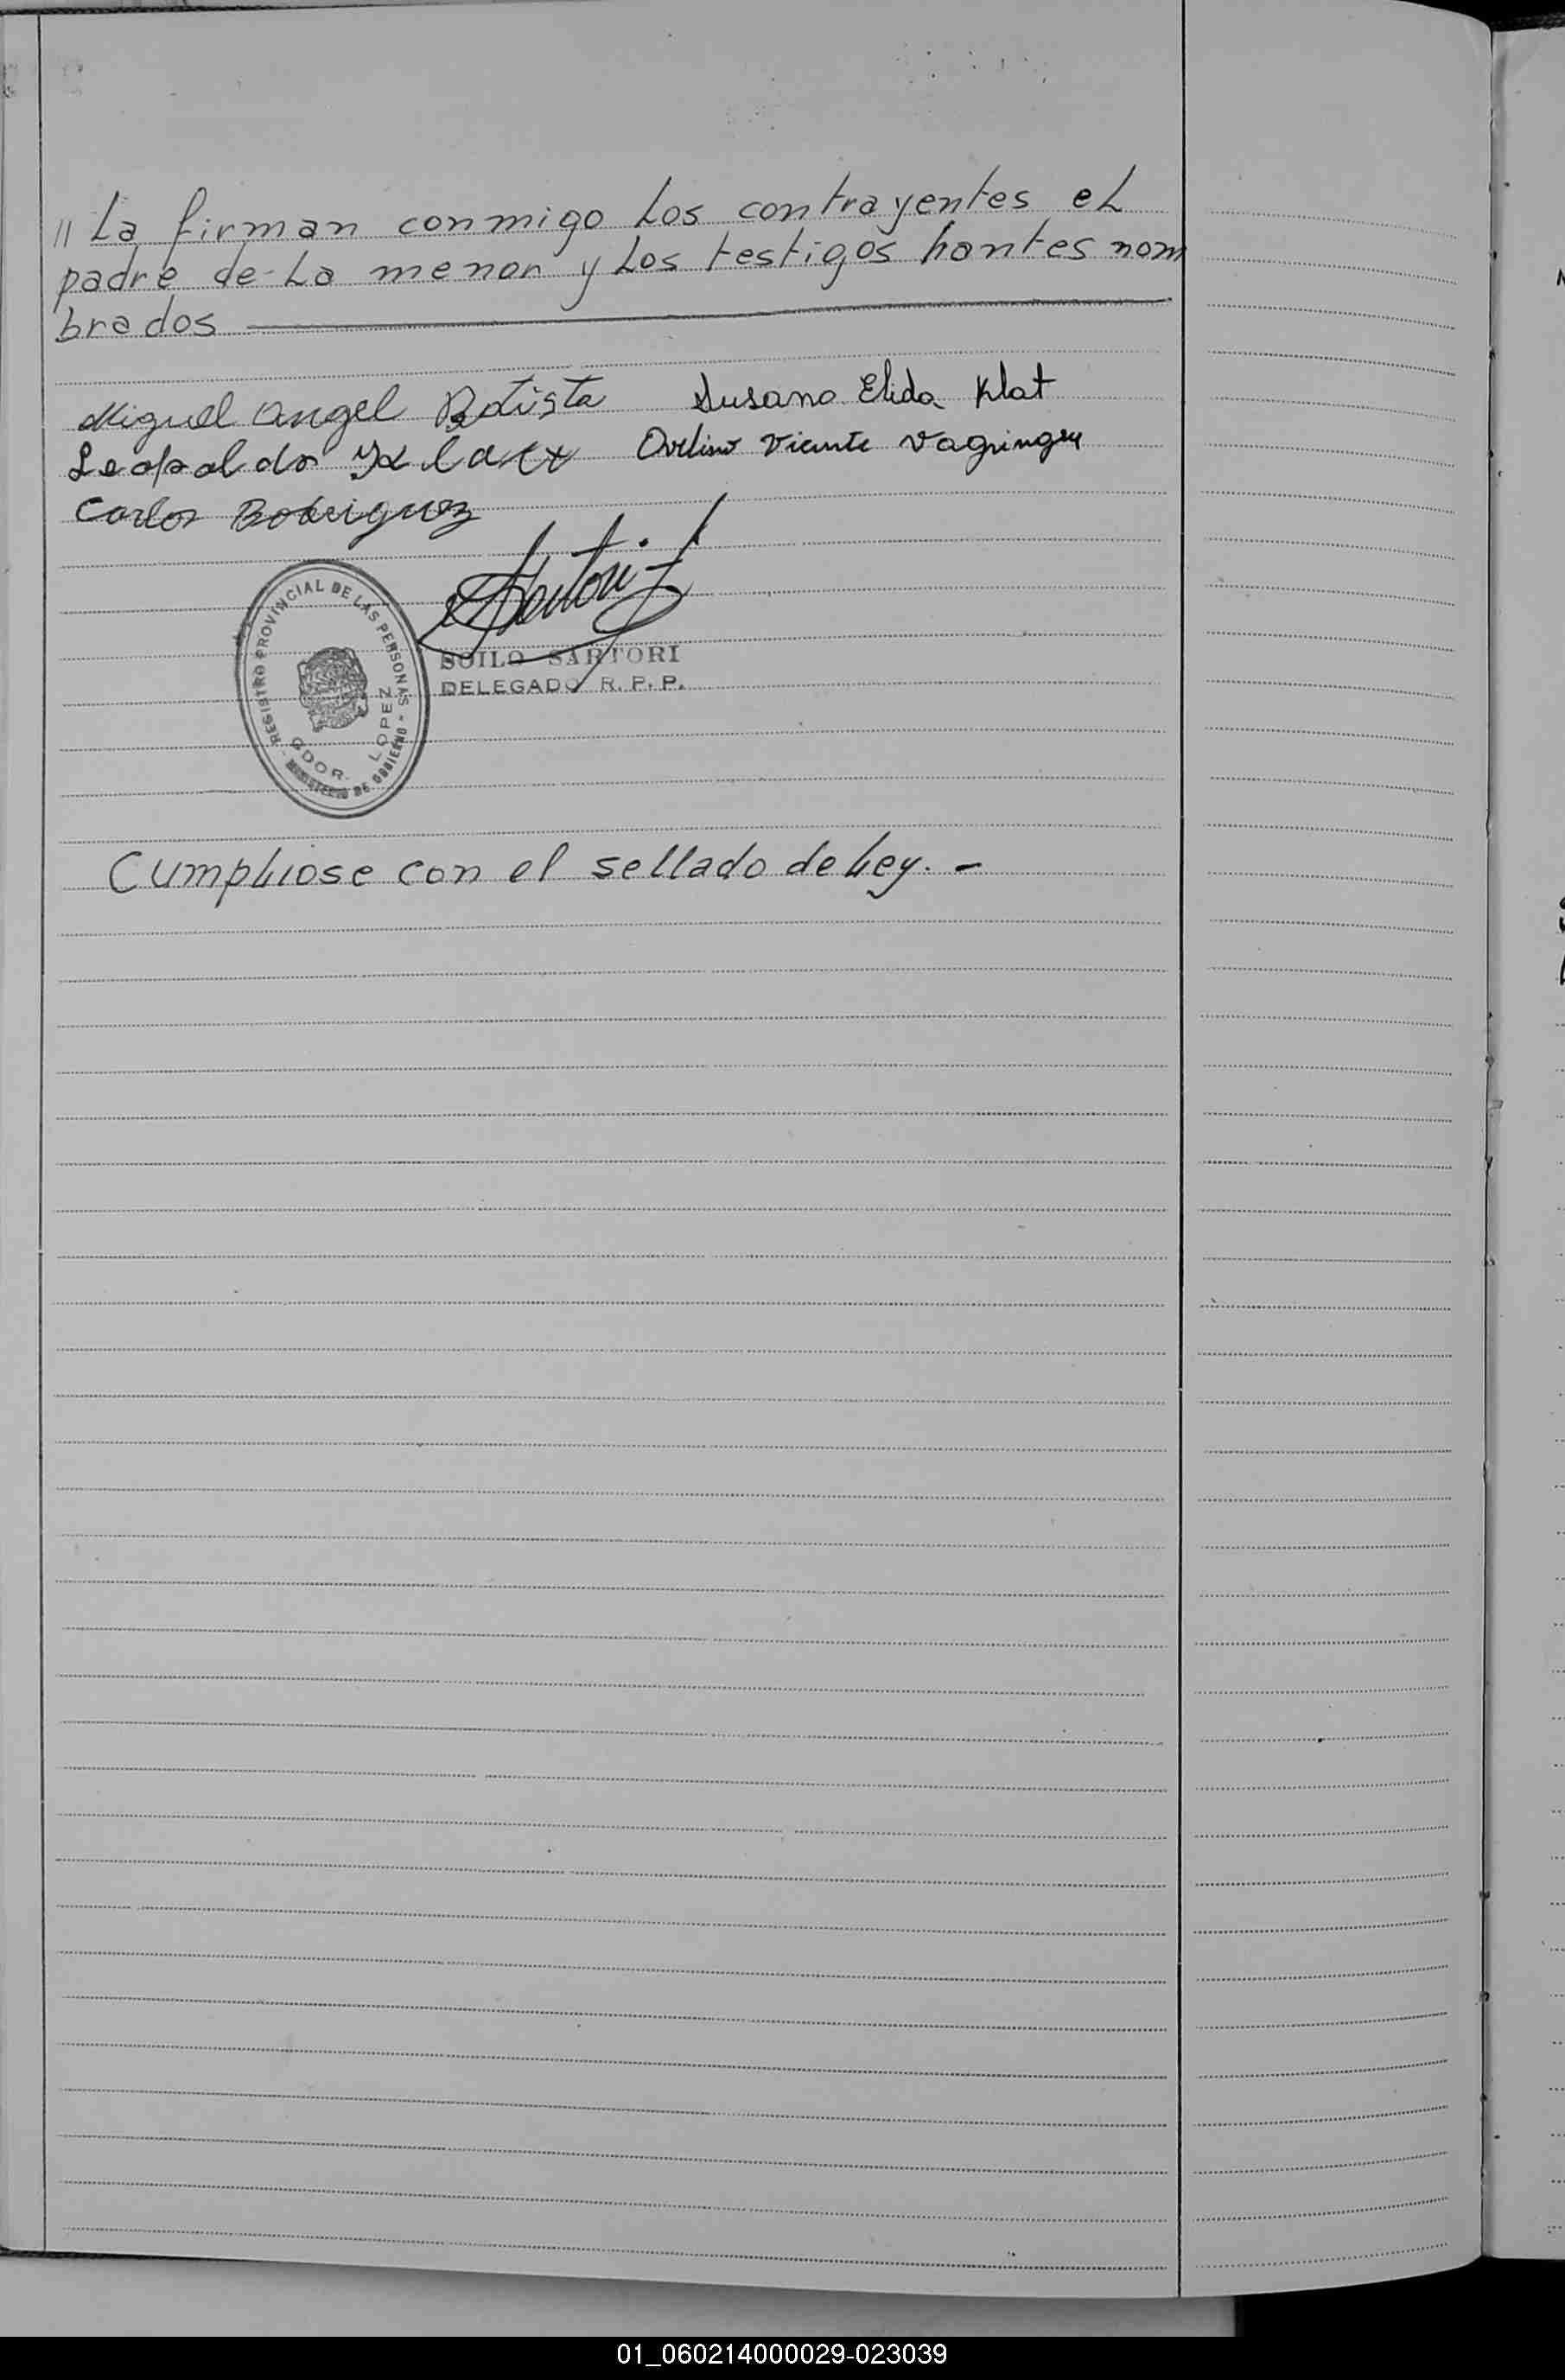 // La firman conmigo Los contrayentes eL
padre de La menor y Los testigos hantes nom
brados
Miguel Angel Batista Susana Elida Klat
Leopoldo Klatt Ovelino Vicente Vagninger
Carlos Rodriguez
SOILO SARTORI
DELEGADO R. P. P.
REGISTRO PROVINCIAL DE LAS PERSONAS - MINISTERIO DE GOBIERNO -
GDOR. LOPEZ
CumpLiose con el sellado de Ley. -
01_060214000029-023039